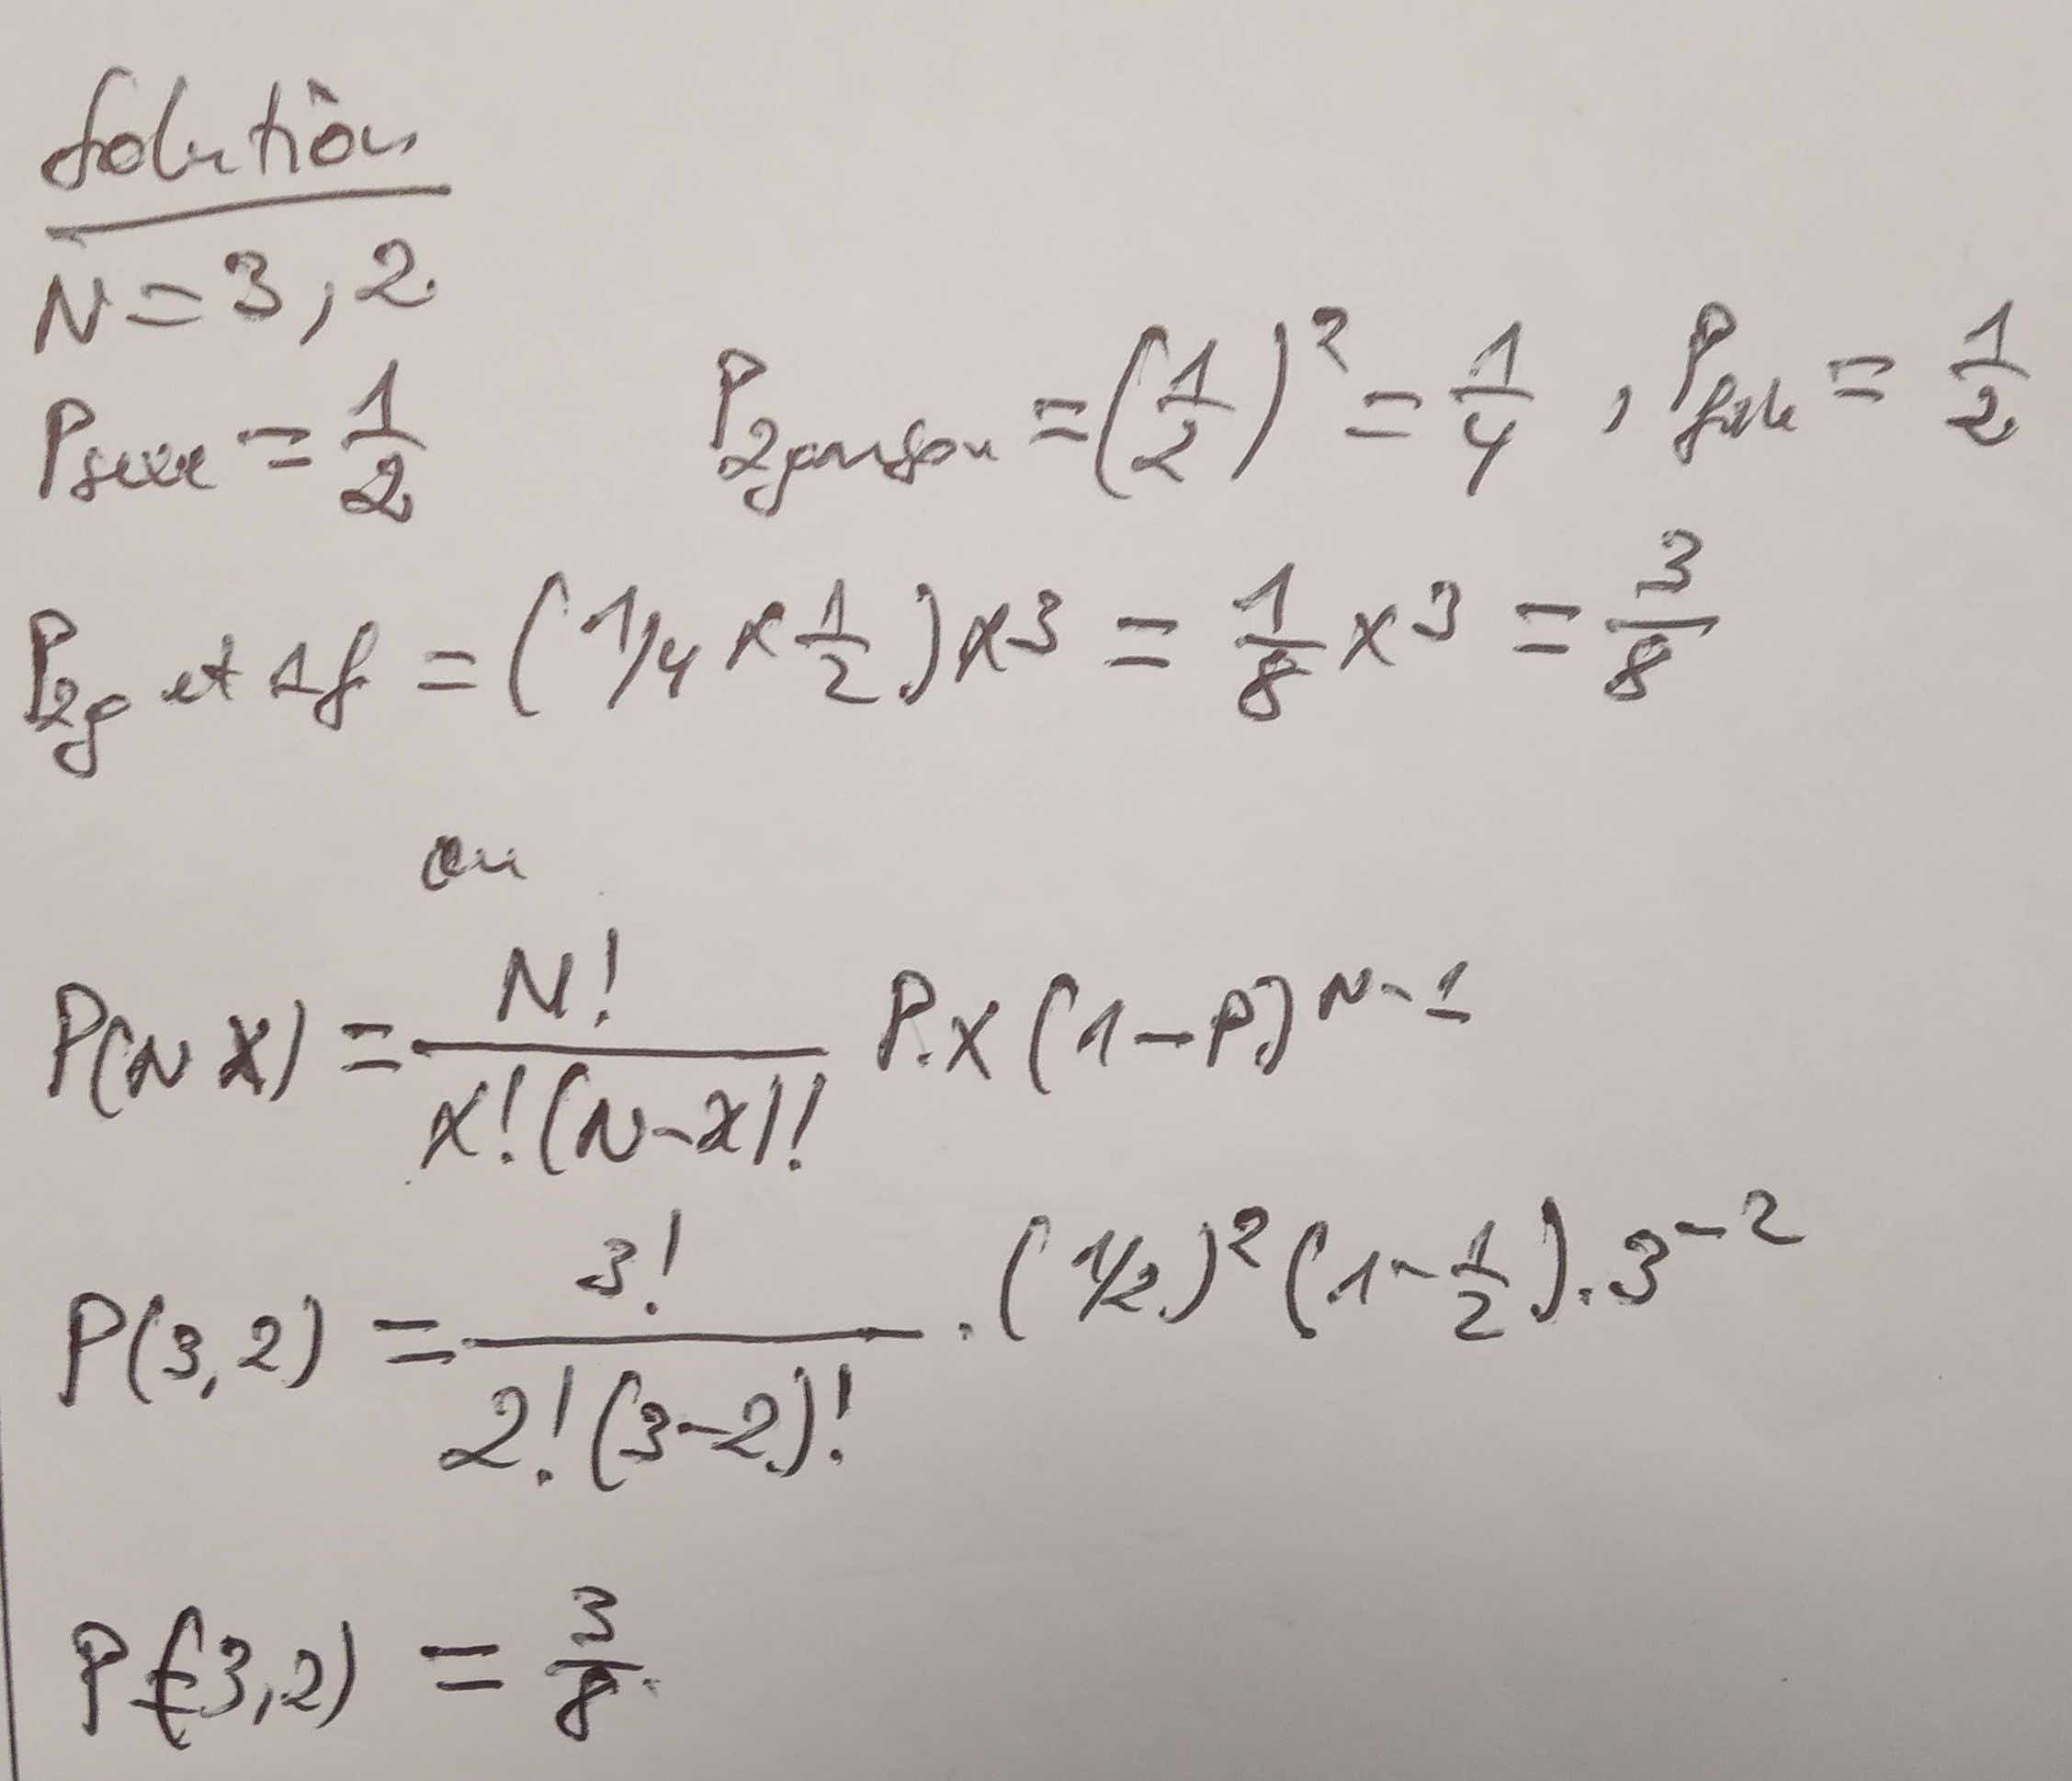 Solution
N = 3, 2
Psexe = 1/2
P2garson = (1/2)² = 1/4 , Pfille = 1/2
P2g et 1f = (1/4 x 1/2) x 3 = 1/8 x 3 = 3/8
ou
P(N X) = N! / X! (N-X)! P.X (1-P)^N-1
P(3,2) = 3! / 2! (3-2)! . (1/2)² (1-1/2).3⁻²
P(3,2) = 3/8.